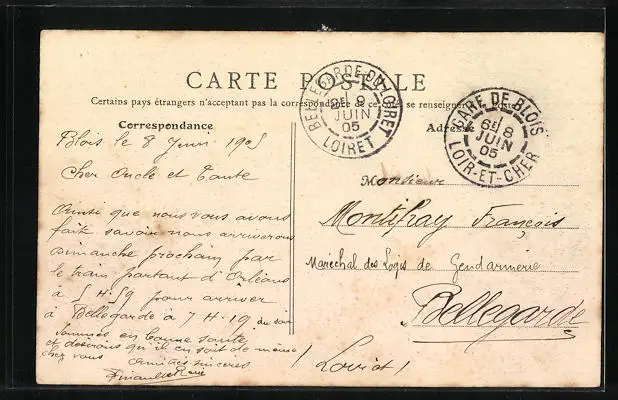 CARTE POSTALE
Certains pays étrangers n'acceptant pas la correspondance de ce côté, se renseigner à la Poste
Correspondance
Adresse
BELLEGARDE DU LOIRET
9
JUIN
05
LOIRET
GARE DE BLOIS
6E 8
JUIN
05
LOIR-ET-CHER
Blois le 8 Juin 1905
Cher Oncle et Tante
Ainsi que nous vous avons
fait savoir nous arriverons
Dimanche prochain par
le train partant d'Orléans
à 5 H. 59 pour arriver
à Bellegarde à 7 H. 19 du soir
Sommes en bonne santé
et désirons qu'il en soit de même
chez vous
Amitiés sincères
Monsieur
Montifray François
Maréchal des Logis de Gendarmerie
Bellegarde
Loiret